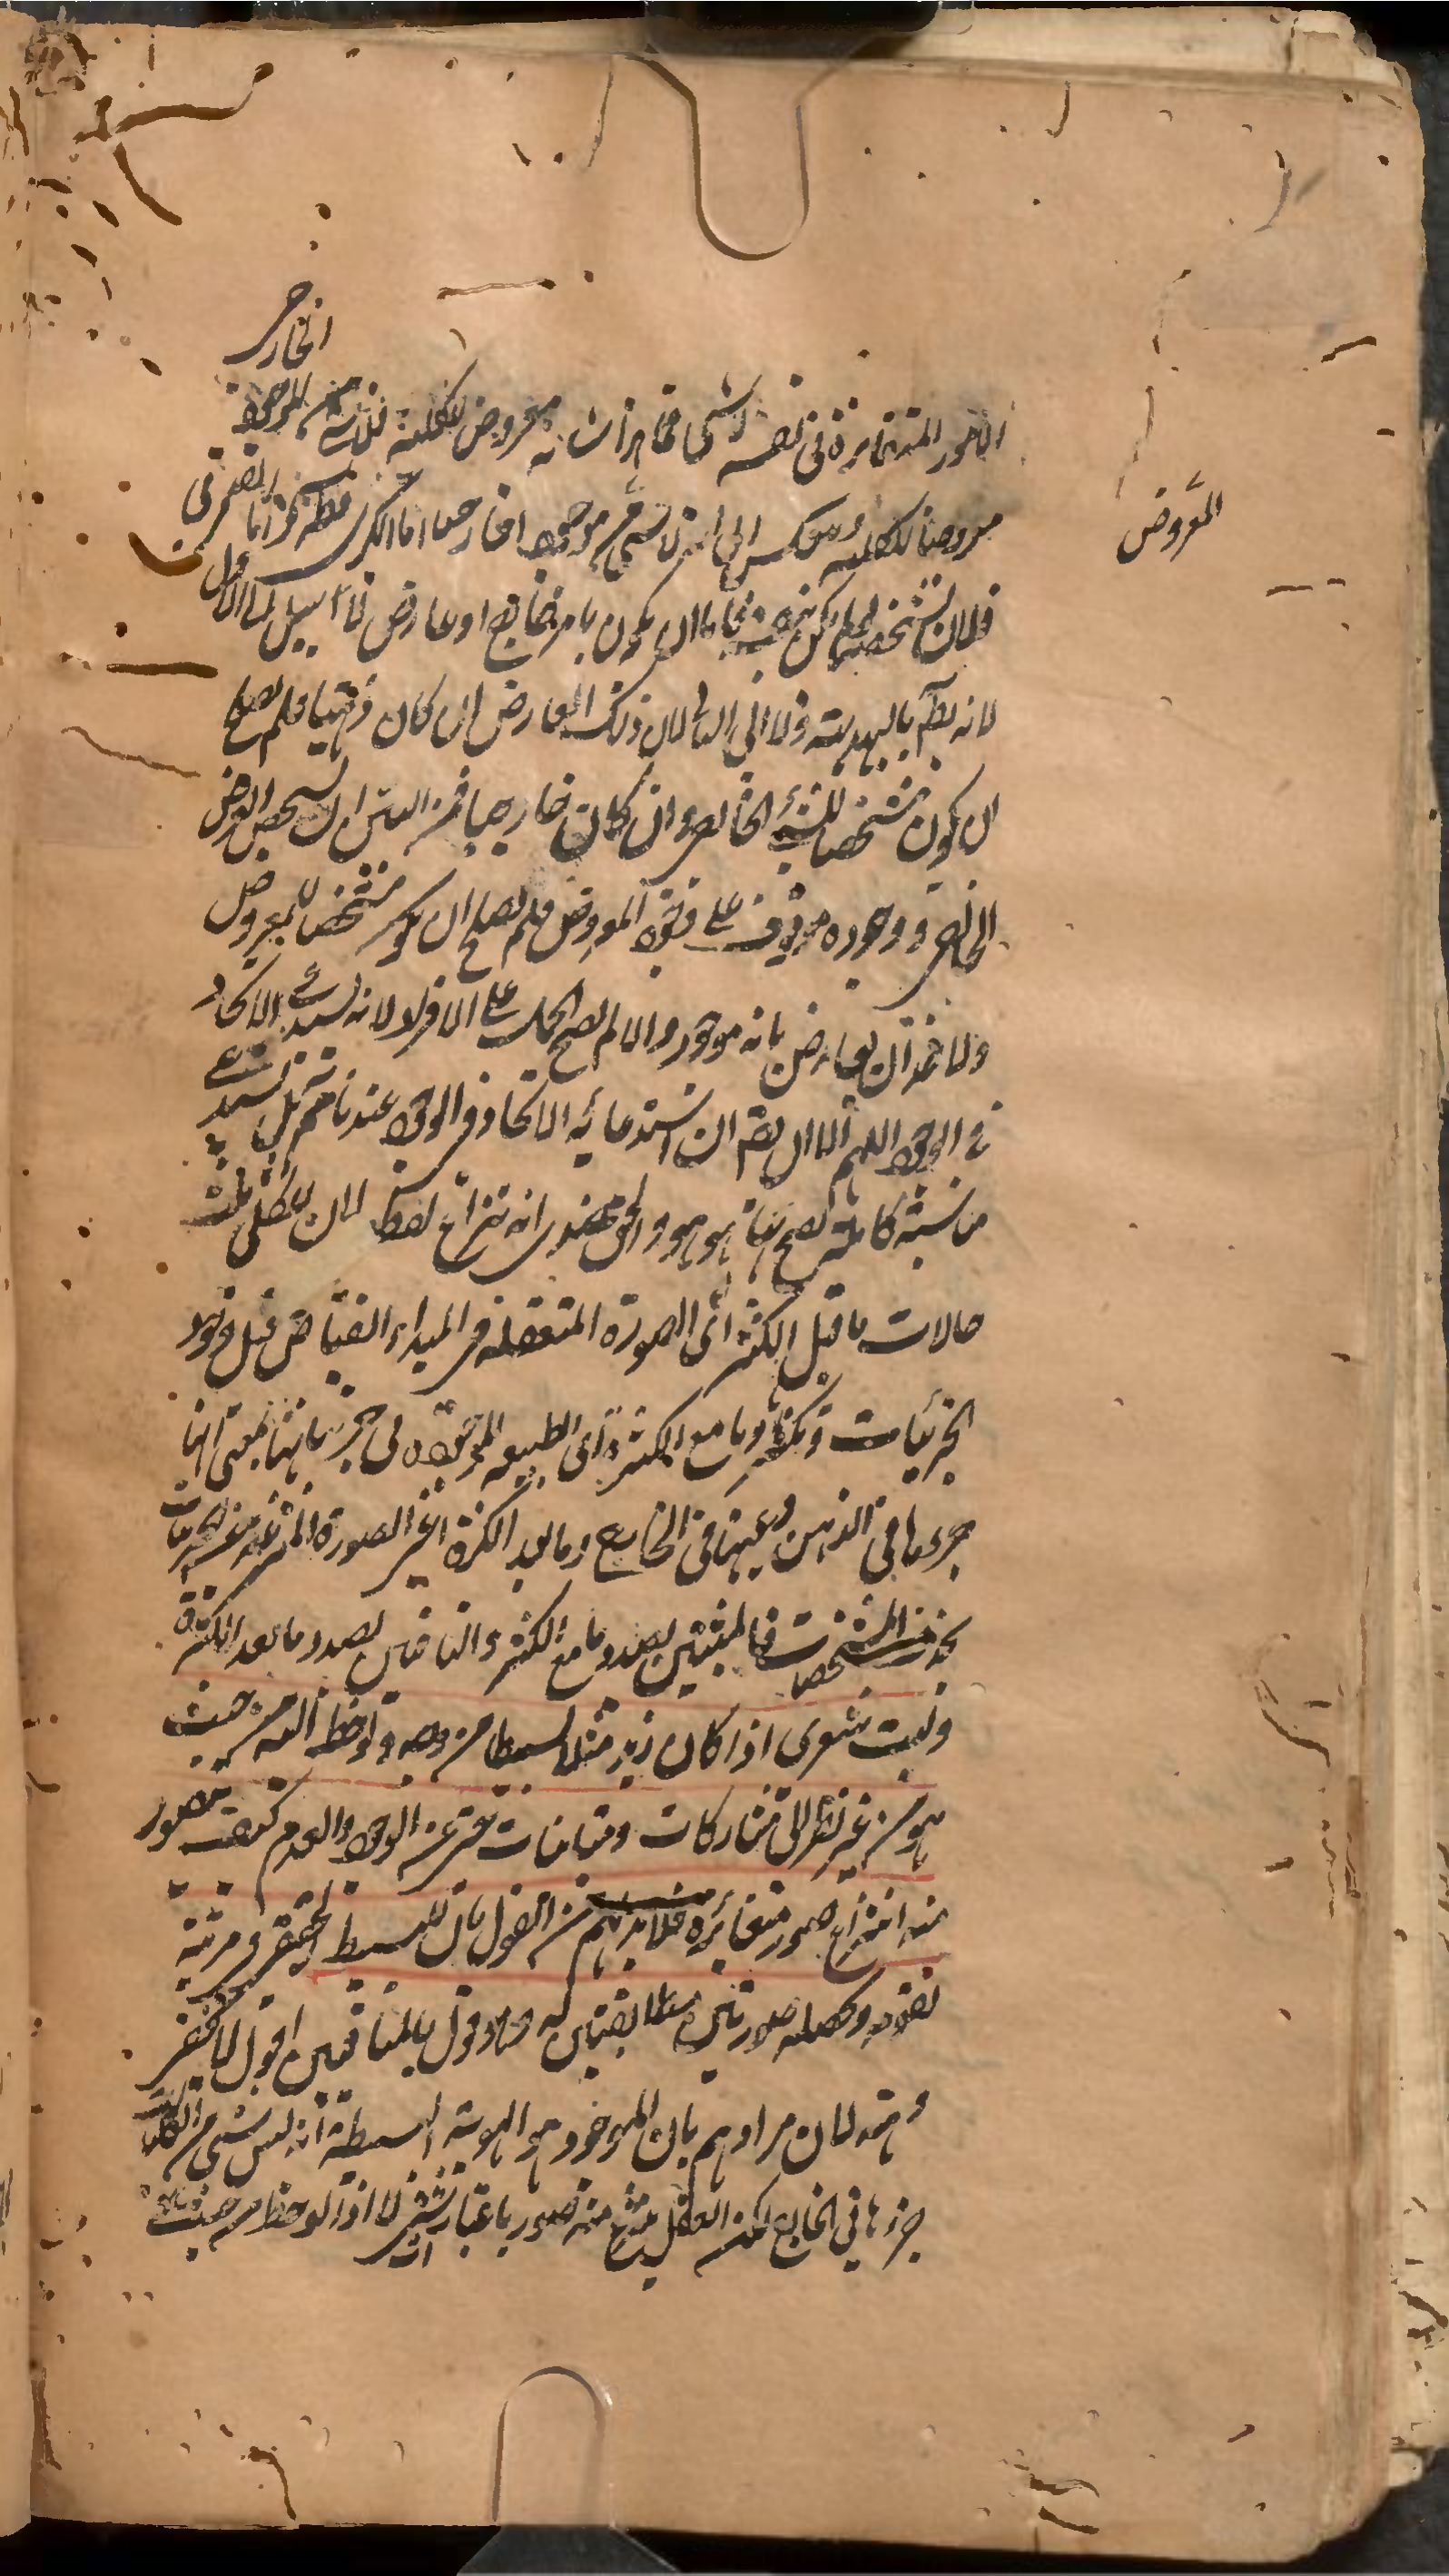 الخارجي
الامور المتغايرة في نفسه لا شيء مما هذا شانه معروض للكلية فلا شيء من الموجود
معروضا للكلية وينعكس الى انه لا شيء من موجود الخارجي اما الكبرى فظاهرة واما الصغرى
فلان تشخصه ان يكون بامر خارج او عارض لا سبيل الى الاول
لانه بط بالبديهة ولا الى الثاني لان ذلك العارض ان كان ذهنيا فلم يصلح
ان يكون مشخصا للشيء الخارجي وان كان خارجيا فمن البين ان تشخص العرض
الخارجي ووجوده موقوف على وجود المعروض فلم يصلح ان يكون مشخصا للمعروض
ولاخذ ان يعارض بانه موجود والا لم يصح الحمل على الافراد لانه يستدعي الاتحاد
في الوجود اللهم الا ان يقم ان استدعائه الاتحاد في الوجود عندنا ثم بل يستدعي
مناسبة كاملة يصح بها هو هو والحق عندي انه نزاع لفظي لان للكلي ثلث
حالات ما قبل الكثرة اي الصورة المتعقلة في المبداء الفياض قبل وجود
الجزئيات وتكثرها وما مع الكثرة اي الطبيعة الموجودة في جزئياتها بمعنى انها
جزءها في الذهن وعينها في الخارج وما بعد الكثرة اعني الصورة المنتزعة من الجزئيات
بحذف المشخصات فالمثبتين بصدد ما مع الكثرة والنافين بصدد ما بعد الكثرة
وليت شعري اذا كان زيد مثلا بسيطا من وجه ولوحظ اليه من حيث
هو من غير نظر الى مشاركات ومباينات حتى عن الوجود والعدم كيف يتصور
منه انتزاع صور متغائرة فلا بد لهم من القول بان للبسيط الحقيقي في مرتبة
تقومه وتحصله صورتين مطابقتين له وهو قول بالمتنافيين اقول لا يخفى
وهنه لان مرادهم بان الموجود هو الهوية البسيطة انه ليس شيء من الكليات
جزءها في الخارج لكن العقل ينتزع منه صور باعتبار شتى لا اذا لوحظ من حيث
المعروض